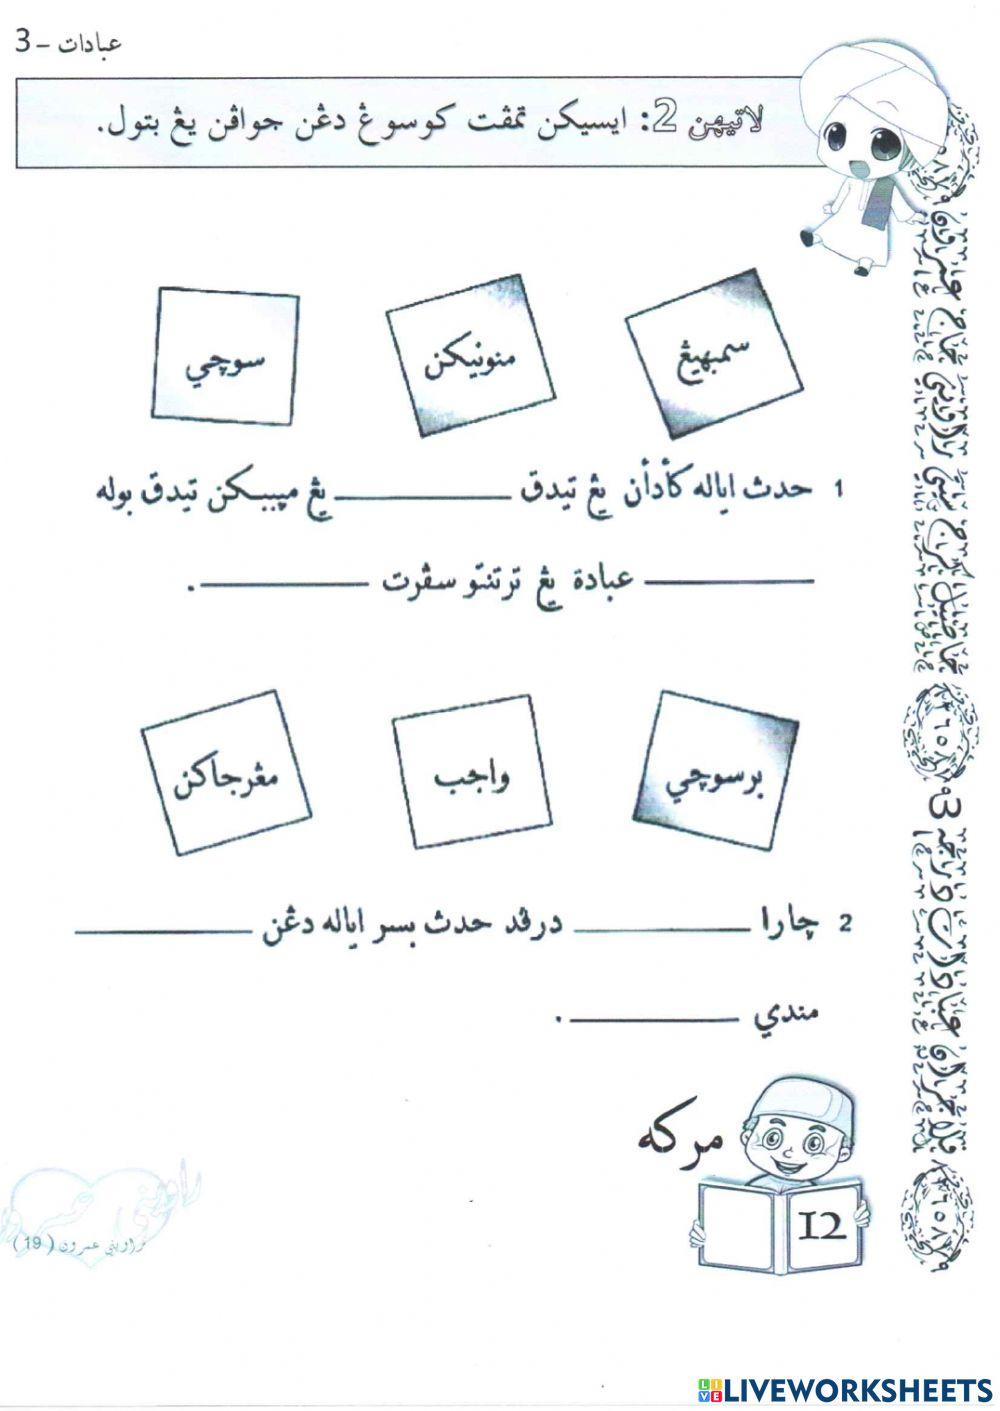 عبادات – 3
لاتيهن 2: ايسيكن تمڤت كوسوڠ دڠن جواڤن يڠ بتول.
سمبهيڠ
منونيكن
سوچي
1 حدث اياله كأدأن يڠ تيدق ____________ يڠ مپببكن تيدق بوله
____________ عبادة يڠ ترتنتو سڤرت ____________ .
برسوچي
واجب
مڠرجاكن
2 چارا ____________ درڤد حدث بسر اياله دڠن ____________
مندي ____________ .
مركه
12
( 19 )
LIVEWORKSHEETS